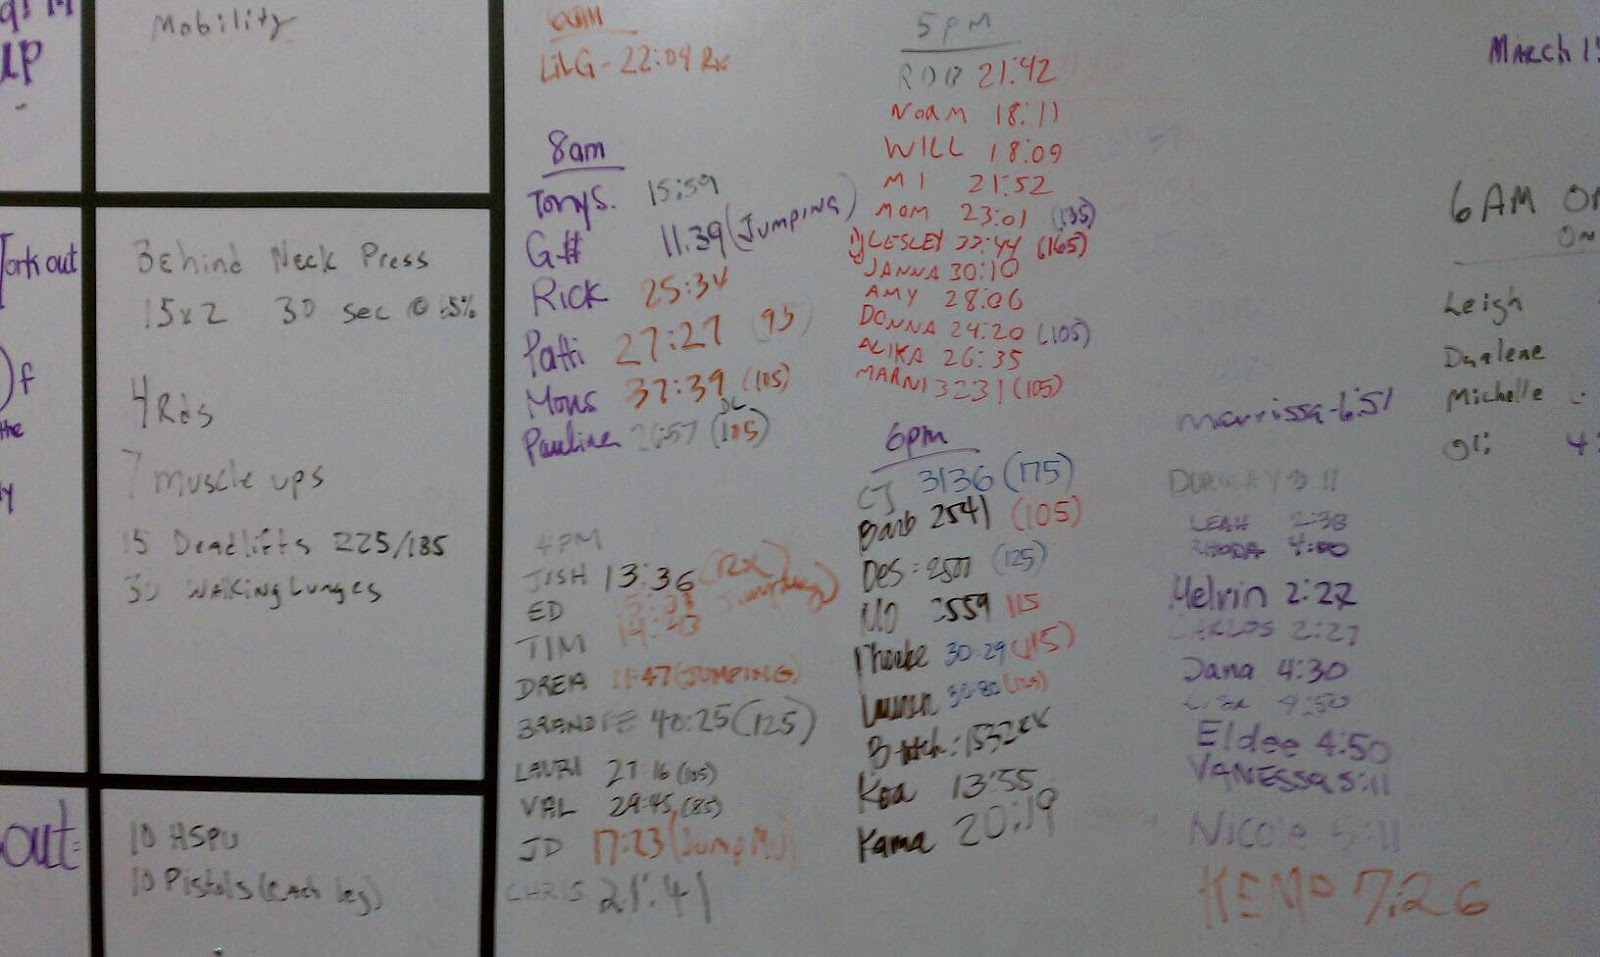 UP
Mobility
Workout
Behind Neck Press
15x2 30 sec @
of
4 Rds
the
7 muscle ups
15 Deadlifts 225/185
30 Walking Lunges
out:
10 HSPU
10 Pistols (each leg)
6am
LilG - 22:04 Rx
8am
Tony S. 15:59
G# 11:39 (Jumping)
Rick 25:34
Patti 27:27 (95)
Mons 37:39 (105)
Pauline 26:57 (105)
4PM
JOSH 13:36 (Rx)
ED (Jumping)
TIM
DREA 11:47 (JUMPING)
40:25 (125)
LAURI 27:16 (105)
VAL 29:45 (85)
JD 17:23 (Jump MU)
CHRIS 21:41
5PM
ROB 21:42
NOAM 18:11
WILL 18:09
MI 21:52
MOM 23:01 (135)
LESLEY 22:44 (165)
JANNA 30:10
AMY 28:06
DONNA 24:20 (105)
ALIKA 26:35
MARNI 3231 (105)
6pm
CJ 3136 (175)
Barb 2541 (105)
Des: (125)
MO 2559 115
Phoebe 30:29 (115)
Lauren
Butch: 1532 RX
Koa 13:55
Kama 20:19
marrissa - 6:51
LEAH 2:38
RHODA 4:00
Melvin 2:22
CARLOS 2:27
Jana 4:30
Lisa 4:50
Eldee 4:50
VANESSA 5:11
Nicole 5:11
KEMO 7:26
MARCH
6AM
Leigh
Darlene
Michelle